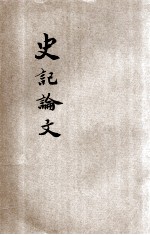 史記論文